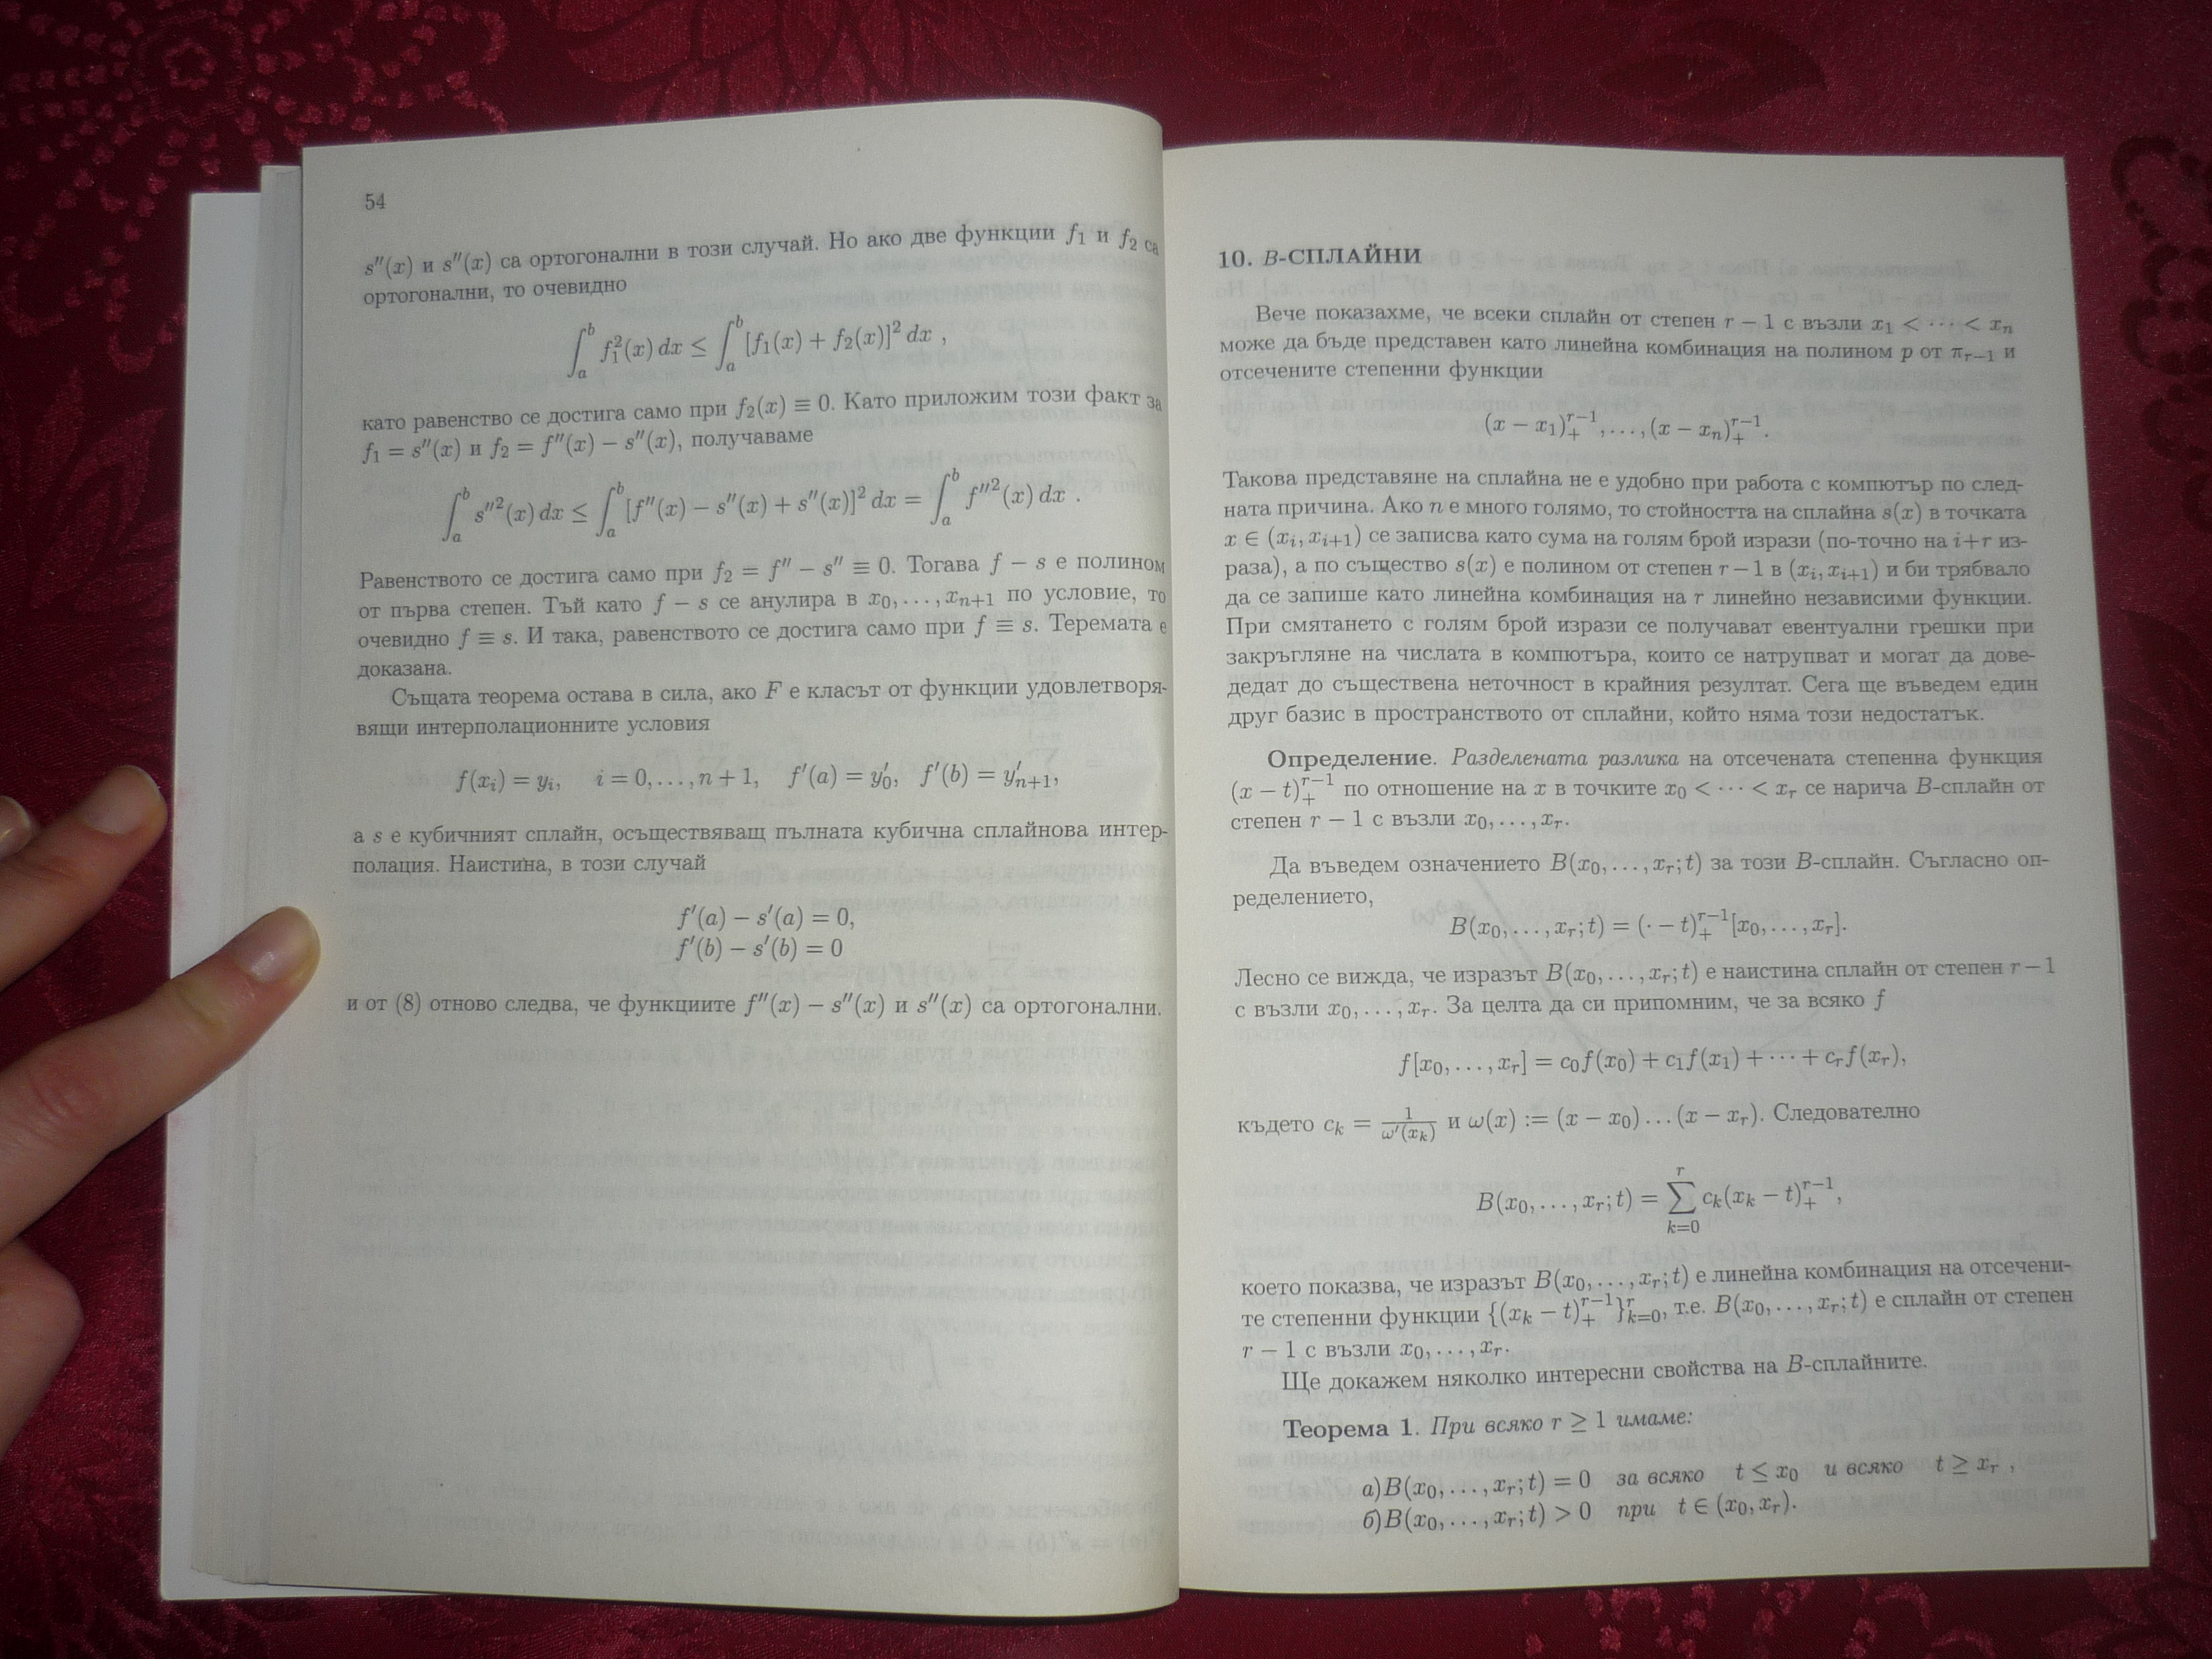 54
s″(x) и s″(x) са ортогонални в този случай. Но ако две функции f₁ и f₂ са
ортогонални, то очевидно
∫ₐᵇ f₁²(x) dx ≤ ∫ₐᵇ [f₁(x) + f₂(x)]² dx ,
като равенство се достига само при f₂(x) ≡ 0. Като приложим този факт за
f₁ = s″(x) и f₂ = f″(x) − s″(x), получаваме
∫ₐᵇ s″²(x) dx ≤ ∫ₐᵇ [f″(x) − s″(x) + s″(x)]² dx = ∫ₐᵇ f″²(x) dx .
Равенството се достига само при f₂ = f″ − s″ ≡ 0. Тогава f − s е полином
от първа степен. Тъй като f − s се анулира в x₀, . . . , xₙ₊₁ по условие, то
очевидно f ≡ s. И така, равенството се достига само при f ≡ s. Теремата е
доказана.
Същата теорема остава в сила, ако F е класът от функции удовлетворя-
вящи интерполационните условия
f(xᵢ) = yᵢ, i = 0, . . . , n + 1, f′(a) = y′₀, f′(b) = y′ₙ₊₁,
а s е кубичният сплайн, осъществяващ пълната кубична сплайнова интер-
полация. Наистина, в този случай
f′(a) − s′(a) = 0,
f′(b) − s′(b) = 0
и от (8) отново следва, че функциите f″(x) − s″(x) и s″(x) са ортогонални.
10. B-СПЛАЙНИ
Вече показахме, че всеки сплайн от степен r − 1 с възли x₁ < · · · < xₙ
може да бъде представен като линейна комбинация на полином p от πᵣ₋₁ и
отсечените степенни функции
(x − x₁)₊ʳ⁻¹, . . . , (x − xₙ)₊ʳ⁻¹.
Такова представяне на сплайна не е удобно при работа с компютър по след-
ната причина. Ако n е много голямо, то стойността на сплайна s(x) в точката
x ∈ (xᵢ, xᵢ₊₁) се записва като сума на голям брой изрази (по-точно на i+r из-
раза), а по същество s(x) е полином от степен r − 1 в (xᵢ, xᵢ₊₁) и би трябвало
да се запише като линейна комбинация на r линейно независими функции.
При смятането с голям брой изрази се получават евентуални грешки при
закръгляне на числата в компютъра, които се натрупват и могат да дове-
дедат до съществена неточност в крайния резултат. Сега ще въведем един
друг базис в пространството от сплайни, който няма този недостатък.
Определение. Разделената разлика на отсечената степенна функция
(x − t)₊ʳ⁻¹ по отношение на x в точките x₀ < · · · < xᵣ се нарича B-сплайн от
степен r − 1 с възли x₀, . . . , xᵣ.
Да въведем означението B(x₀, . . . , xᵣ; t) за този B-сплайн. Съгласно оп-
ределението,
B(x₀, . . . , xᵣ; t) = (· − t)₊ʳ⁻¹[x₀, . . . , xᵣ].
Лесно се вижда, че изразът B(x₀, . . . , xᵣ; t) е наистина сплайн от степен r − 1
с възли x₀, . . . , xᵣ. За целта да си припомним, че за всяко f
f[x₀, . . . , xᵣ] = c₀f(x₀) + c₁f(x₁) + · · · + cᵣf(xᵣ),
където cₖ = 1/ω′(xₖ) и ω(x) := (x − x₀) . . . (x − xᵣ). Следователно
B(x₀, . . . , xᵣ; t) = ∑ₖ₌₀ʳ cₖ(xₖ − t)₊ʳ⁻¹,
което показва, че изразът B(x₀, . . . , xᵣ; t) е линейна комбинация на отсечени-
те степенни функции {(xₖ − t)₊ʳ⁻¹}ₖ₌₀ʳ, т.е. B(x₀, . . . , xᵣ; t) е сплайн от степен
r − 1 с възли x₀, . . . , xᵣ.
Ще докажем няколко интересни свойства на B-сплайните.
Теорема 1. При всяко r ≥ 1 имаме:
а)B(x₀, . . . , xᵣ; t) = 0 за всяко t ≤ x₀ и всяко t ≥ xᵣ ,
б)B(x₀, . . . , xᵣ; t) > 0 при t ∈ (x₀, xᵣ).